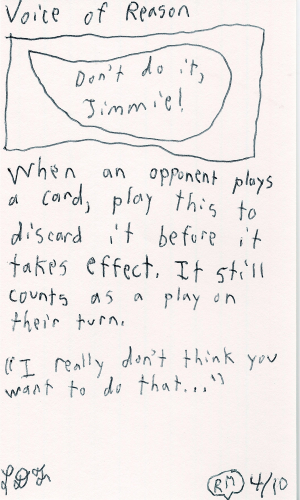 Voice of Reason
Don't do it,
Jimmie!
When an opponent plays
a card, play this to
discard it before it
takes effect. It still
counts as a play on
their turn.
"I really don't think you
want to do that..."
RM 4/10